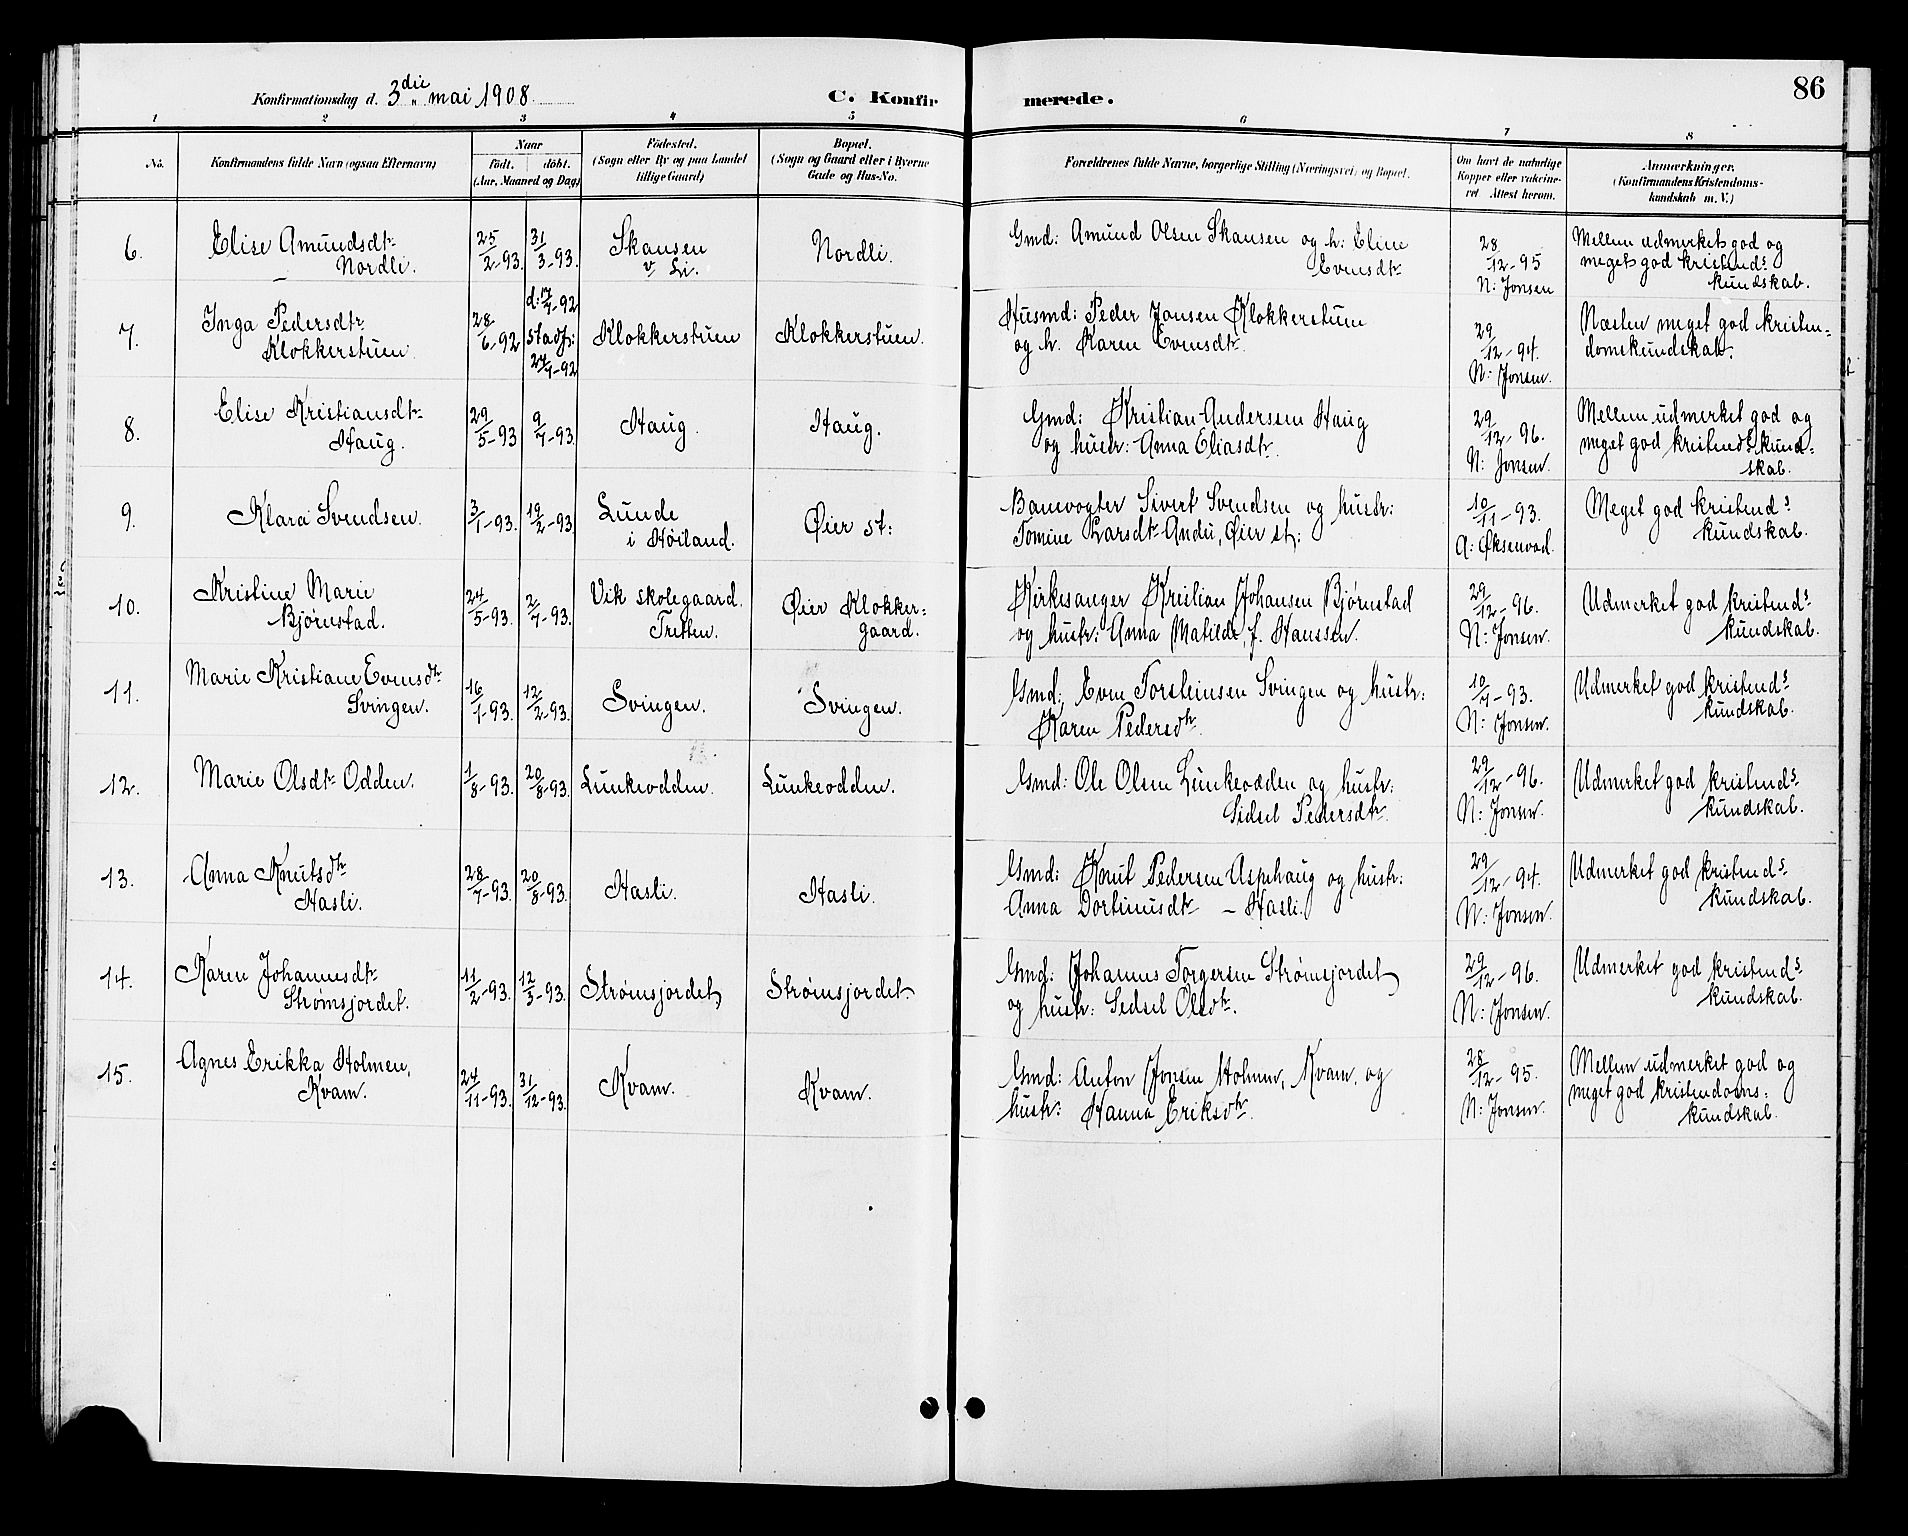 Konfirmationsdag d. 3die mai 1908. C. Konfirmerede. 86
1 2 3 4 5 6 7 8
No. Konfirmandens fulde Navn (ogsaa Efternavn) Naar født. døbt. (Aar, Maaned og Dag) Födested. (Sogn eller By og paa Landet tillige Gaard) Bopæl. (Sogn og Gaard eller i Byerne Gade og Hus-No. Forældrenes fulde Navne, borgerlige Stilling (Næringsvei) og Bopæl. Om havt de naturlige Kopper eller vaccineret Attest herom. Anmærkninger. (Konfirmandens Kristendomskundskab m. V.)
6. Elise Amundsdtr Nordli. 25/2-93. 31/3-93. Skansen v Li. Nordli. Gmd: Amund Olsen Skansen og h: Eline Evensdtr 28/12-95 N: Jonsen Mellem udmerket god og meget god kristends kundskab.
7. Inga Pedersdtr Klokkerstuen. 28/6-92 d: 17/7-92 stadf: 24/7-92 Klokkerstuen Klokkerstuen. Husmd: Peder Jansen Klokkerstuen og h. Karen Evensdtr. 29/12-94. N: Jonsen. Næsten meget god kristendomskundskab.
8. Elise Kristiansdtr Haug. 29/5-93 9/7-93. Haug. Haug. Gmd: Kristian Anderssen Haug og hustr: Anna Eliasdtr. 29/12-96. N: Jonsen. Mellem udmerket god og meget god kristends kundskab.
9. Klara Svendsen. 3/1-93. 19/2-93 Lunde i Høiland. Øier st: Banevogter Sivert Svendsen og hustr: Tomine Larsdtr Andu, Øier st: 10/11-93. A: Øksenvad. Meget god kristends kundskab.
10. Kristine Marie Bjørnstad. 24/5-93. 2/7-93. Vik skolegaard. Tretten. Øier Klokkergaard. Kirkesanger Kristian Johansen Bjørnstad og hustr: Anna Matilde, f. Hanssen. 29/12-96. N: Jonsen. Udmerket god kristends kundskab.
11. Marie Kristiane Evensdtr Svingen. 16/1-93. 12/2-93. Svingen. Svingen. Gmd: Even Torsteinsen Svingen og hustr: Karen Pedersdtr. 10/9-93. N: Jonsen. Udmerket god kristends kundskab.
12. Marie Olsdtr Odden. 1/8-93. 20/8-93. Lunkeodden. Lunkeodden. Gmd: Ole Olsen Lunkeodden og hustr: Sidsel Pedersdtr. 29/12-96. N: Jonsen. Udmerket god kristends. kundskab.
13. Anna Knutsdtr Hasli. 28/7-93. 20/8-93. Hasli. Hasli. Gmd: Knut Pedersen Asphaug og hustr: Anna Dortinusdtr - Hasli. 29/12-94. N: Jonsen. Udmerket god kristends. kundskab.
14. Karen Johannesdtr Strømsjordet. 11/2-93. 12/3-93. Strømsjordet Strømsjordet. Gmd: Johannes Torgersen Strømsjordet og hustr: Sedsel Olsdtr. 29/12-96. N: Jonsen. Udmerket god kristends. kundskab.
15. Agnes Erikka Holmen, Kvam. 24/11-93. 31/12-93. Kvam. Kvam. Gmd: Anton Jonsen Holmen, Kvam, og hustr: Hanna Eriksdtr. 28/12-95. N: Jonsen. Mellem udmerket god og meget god kristendomskundskab.